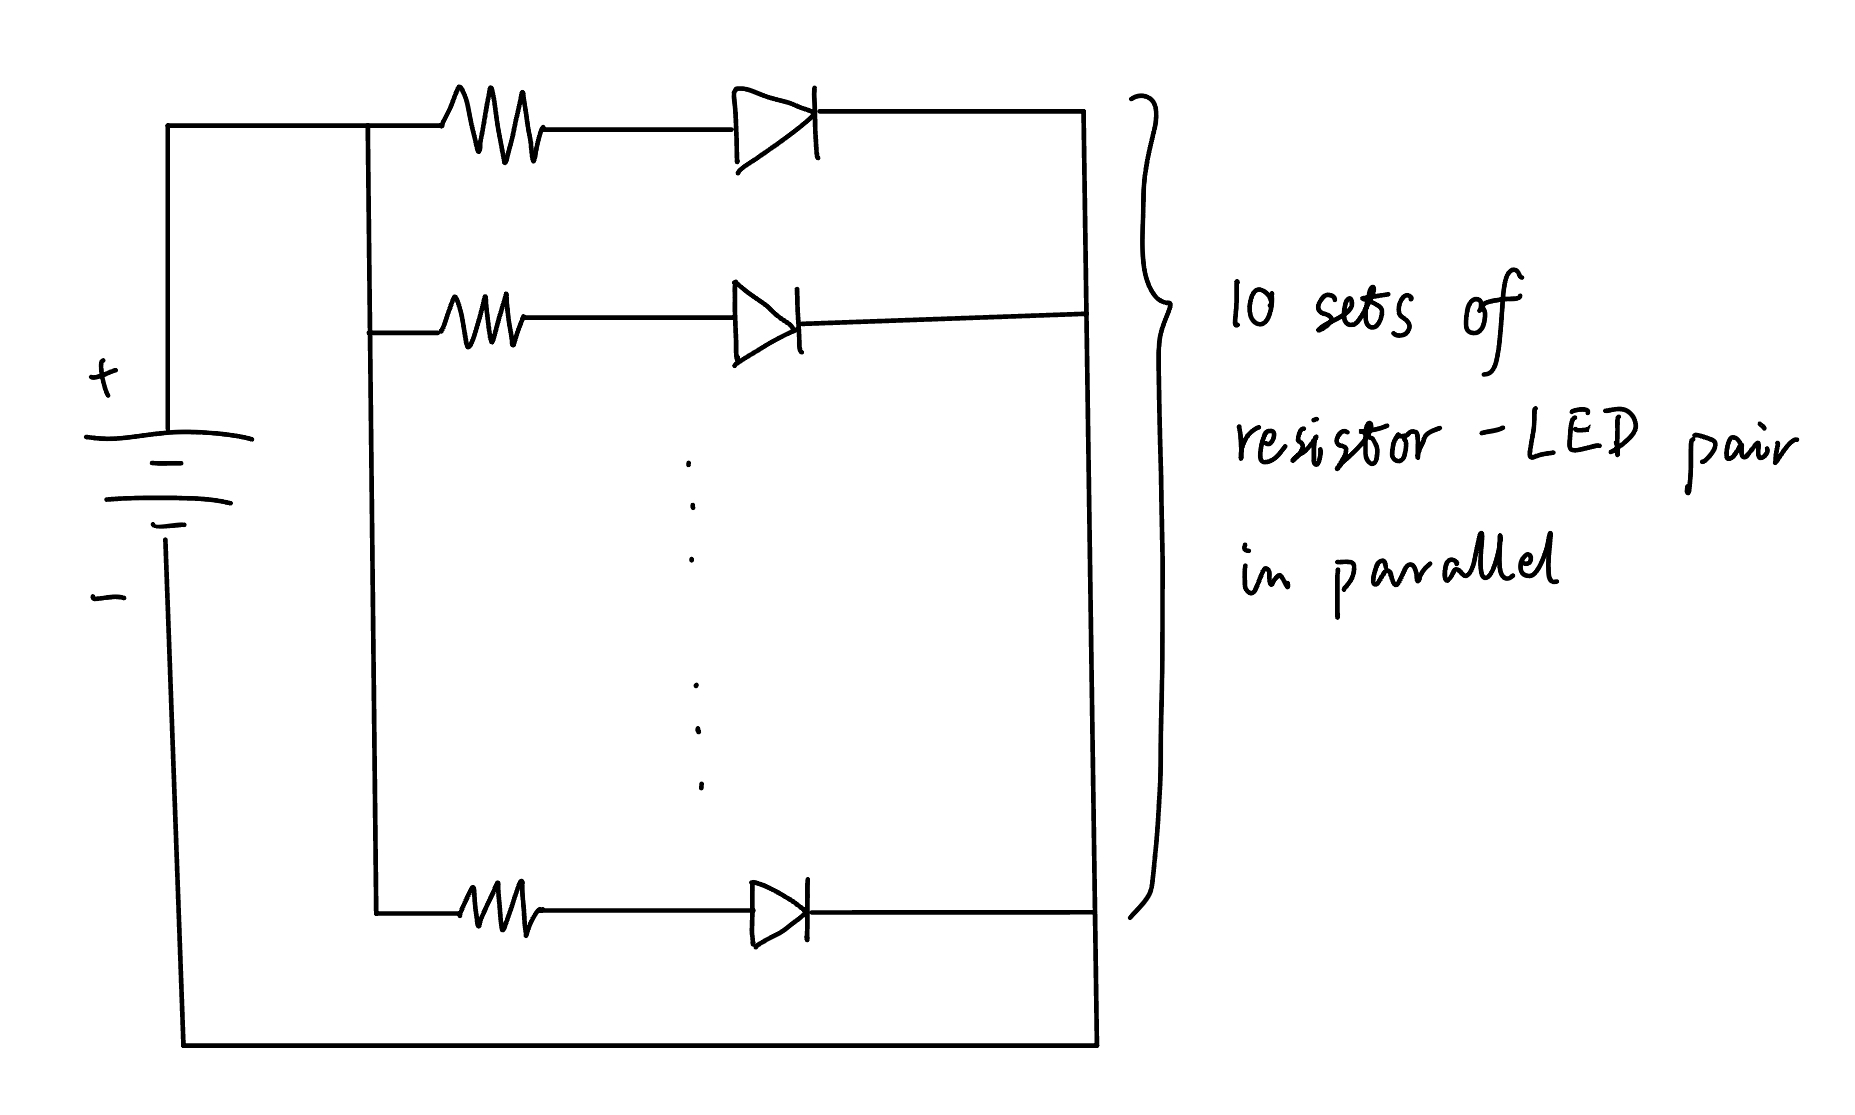 10 sets of
resistor - LED pair
in parallel
+
-